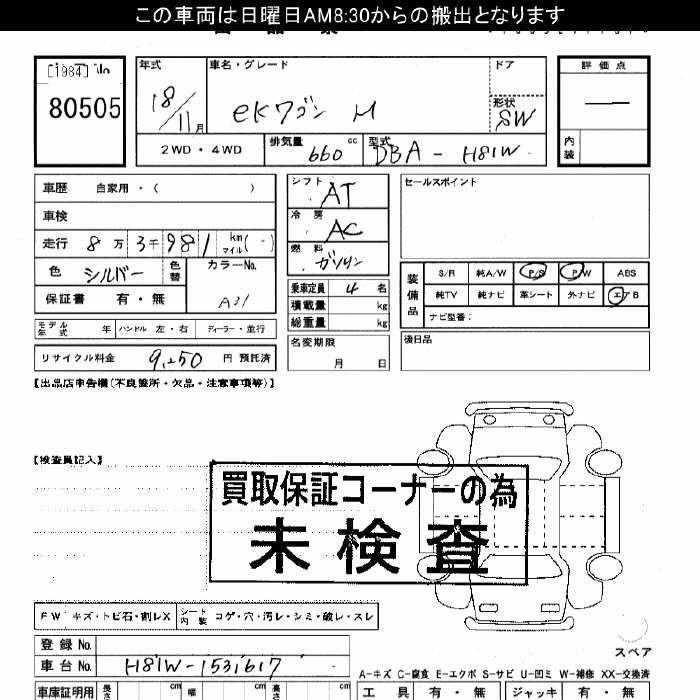 この車両は日曜日AM8:30からの搬出となります
[1984] No
80505
年式 18/11月
車名・グレード eKワゴン M
ドア
形状 SW
2WD・4WD
排気量 660 cc
型式 DBA-H81W
評価点
内装
車歴 自家用・( )
車検
走行 8万3千981 km マイル(-)
色 シルバー 色替
カラーNo. A31
保証書 有・無
シフト AT
冷房 AC
燃料 ガソリン
乗車定員 4名
積載量 kg
総重量 kg
名変期限 月 日
セールスポイント
装備品
S/R 純A/W P/S P/W ABS
純TV 純ナビ 革シート 外ナビ エアB
ナビ型番:
後日品
モデル年式 年 ハンドル 左・右 ディーラー・並行
リサイクル料金 9,250 円 預託済
【出品店申告欄(不良箇所・欠品・注意事項等)】
【検査員記入】
買取保証コーナーの為
未検査
FW キズ・トビ石・割レX
シート内装 コゲ・穴・汚レ・シミ・破レ・スレ
スペア
登録No.
車台No. H81W-1531617
A-キズ C-腐食 E-エクボ S-サビ U-凹ミ W-補修 XX-交換済
車庫証明用 長さ cm 幅 cm 高さ cm
工具 有・無 ジャッキ 有・無